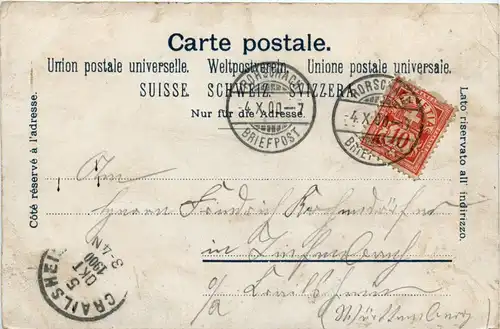 Carte postale.
Union postale universelle. Weltpostverein. Unione postale universale.
SUISSE. SCHWEIZ. SVIZZERA.
Nur für die Adresse.
Côté réservé à l'adresse.
Lato riservato all' indirizzo.
RORSCHACH
-4.X.00.-7
BRIEFPOST
RORSCHACH
-4.X.00.-
BRIEFPOST
HELVETIA
10
An
Herrn Friedrich
in
o/a Crailsheim
(Württemberg)
CRAILSHEIM
5 OKT
1900
3-4 N